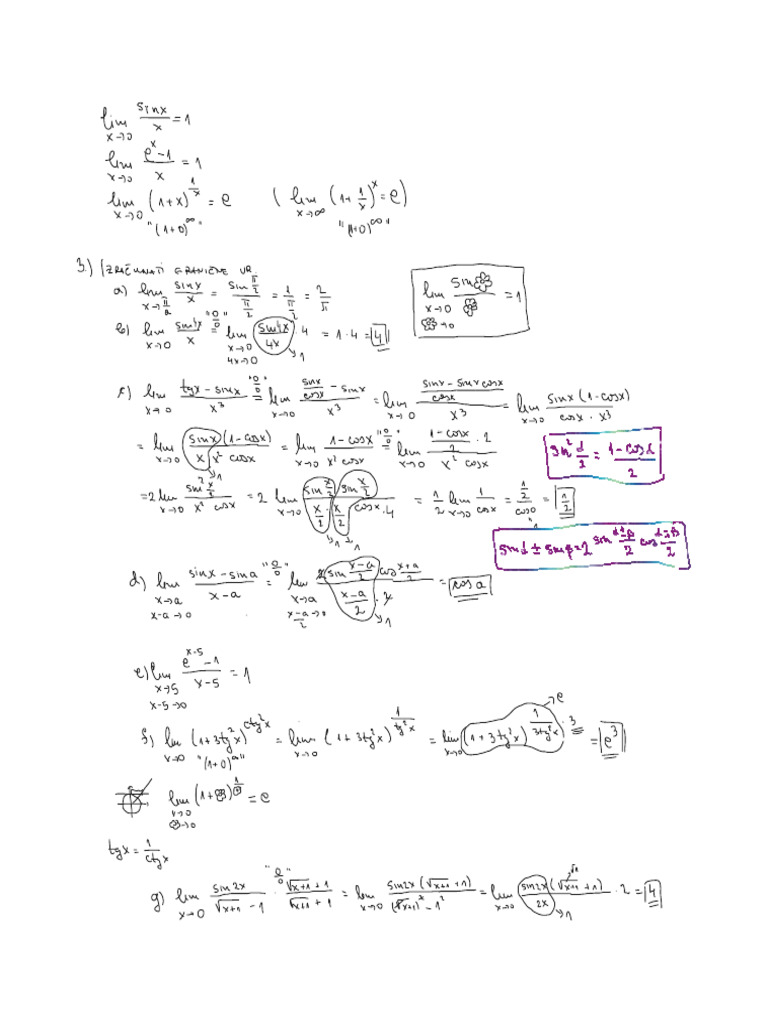 lim_{x→0} sinx/x = 1
lim_{x→0} (e^x-1)/x = 1
lim_{x→0} (1+x)^{1/x} = e ( lim_{x→∞} (1+1/x)^x = e )
"(1+0)^∞" "(1+0)^∞"
3.) IZRAČUNATI GRANIČNE VR.
a) lim_{x→π/2} sinx/x = sin(π/2)/(π/2) = 1/(π/2) = 2/π
lim_{x→0, ❀→0} sin❀/❀ = 1
b) lim_{x→0} sin4x/x "0/0" = lim_{x→0, 4x→0} sin4x/4x · 4 = 1·4 = 4
→1
c) lim_{x→0} (tgx-sinx)/x^3 "0/0" = lim_{x→0} (sinx/cosx - sinx)/x^3 = lim_{x→0} ((sinx-sinxcosx)/cosx)/x^3 = lim_{x→0} sinx(1-cosx)/(cosx·x^3)
= lim_{x→0} sinx(1-cosx)/(x x^2 cosx) = lim_{x→0} (1-cosx)/(x^2 cosx) "0/0" = lim_{x→0} ((1-cosx)/2 · 2)/(x^2 cosx)
→1
sin^2 α/2 = (1-cosα)/2
= 2 lim_{x→0} sin^2(x/2)/(x^2 cosx) = 2 lim_{x→0} (sin(x/2) sin(x/2))/(x/2 · x/2 cosx·4) = 1/2 lim_{x→0} 1/cosx = (1/2)/cos0 = 1/2
→1 →1 "1
sinα ± sinβ = 2 sin (α±β)/2 cos (α∓β)/2
d) lim_{x→a, x-a→0} (sinx-sina)/(x-a) "0/0" = lim_{x→a, (x-a)/2→0} (2 sin((x-a)/2) cos((x+a)/2))/((x-a)/2 · 2) = cosa
→1
e) lim_{x→5, x-5→0} (e^{x-5}-1)/(x-5) = 1
→e
f) lim_{x→0} (1+3tg^2x)^{ctg^2x} = lim_{x→0} (1+3tg^2x)^{1/tg^2x} = lim_{x→0} (1+3tg^2x)^{1/(3tg^2x) · 3} = e^3
"(1+0)^∞"
lim_{x→0, ❀→0} (1+❀)^{1/❀} = e
tgx = 1/ctgx
g) lim_{x→0} sin2x/(√(x+1) - 1) "0/0" · (√(x+1)+1)/(√(x+1)+1) = lim_{x→0} sin2x(√(x+1)+1)/((√(x+1))^2-1^2) = lim_{x→0} sin2x(√(x+1)+1)/2x · 2 = 4
→1